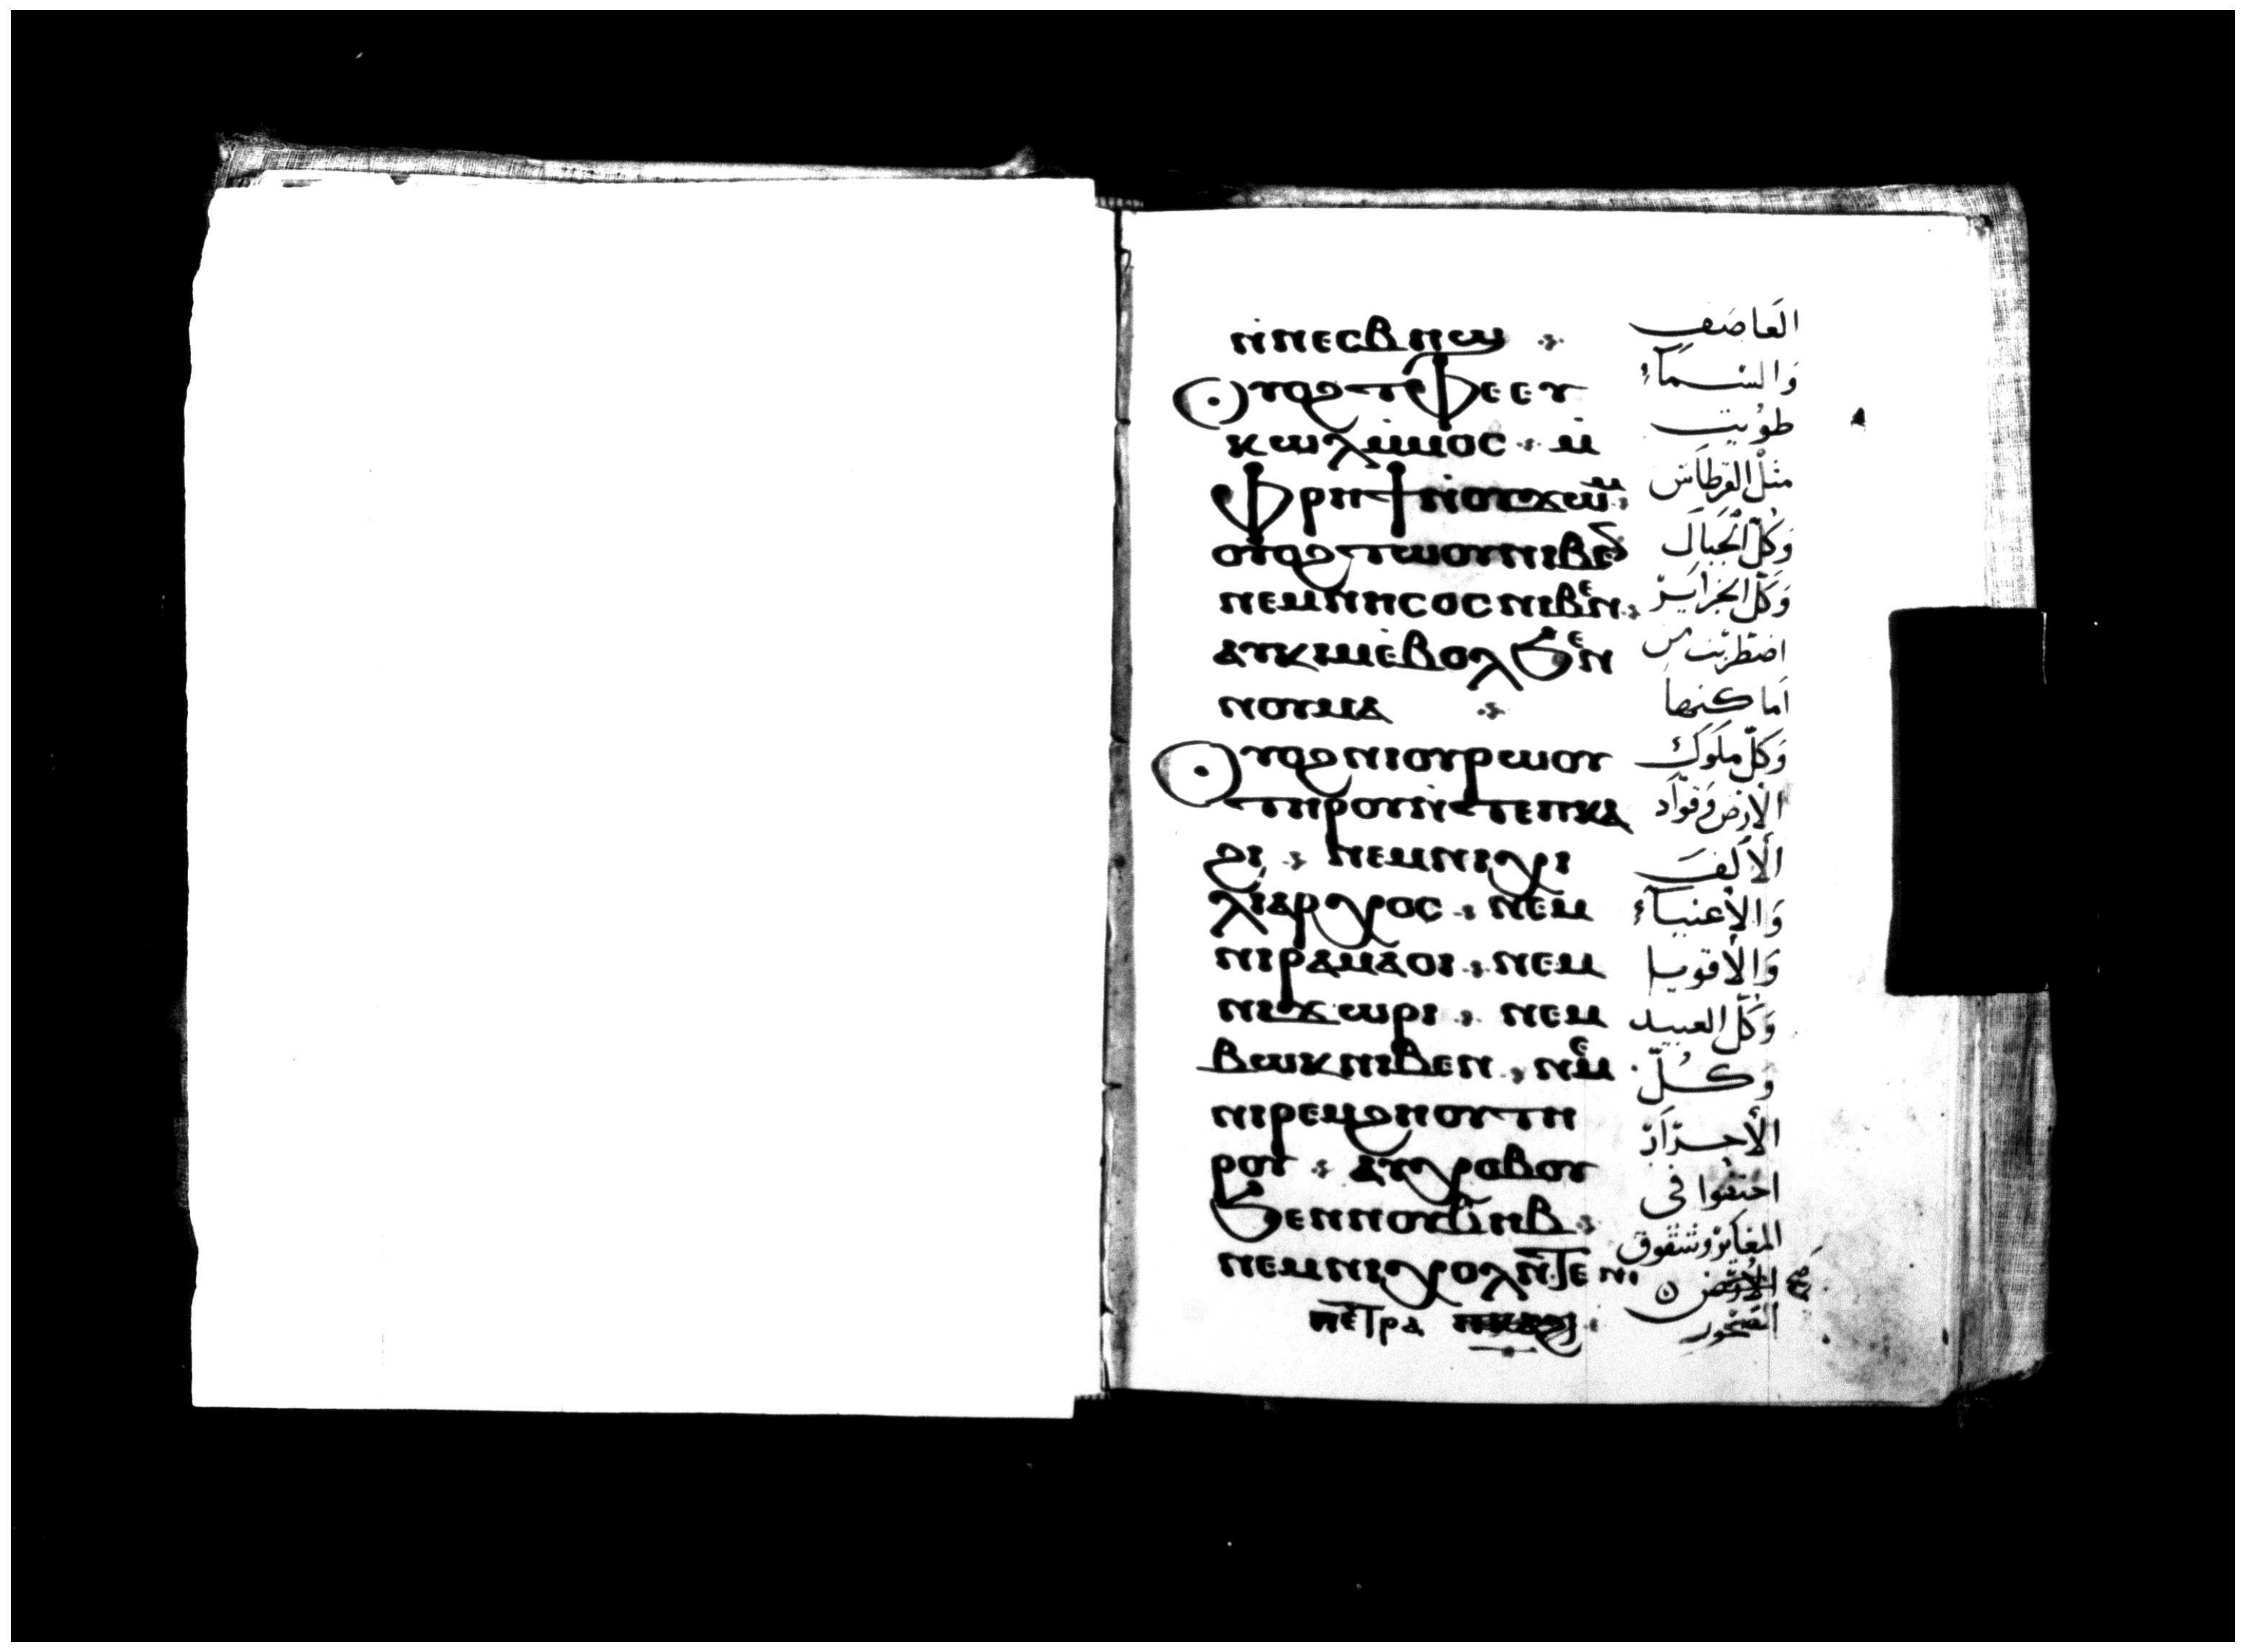 ⲛ̇ⲛⲉⲥⲃⲏϣ
Ⲟⲩⲟϩ ⲧⲫⲉ ⲉⲩ
ⲕⲱⲗ ⲙ̇ⲙⲟⲥ ⲙ̇
ⲫⲣⲏϯ ⲛ̇ⲟⲩϫⲱⲙ
ⲟⲩⲟϩ ⲧⲱⲟⲩ ⲛⲓⲃⲉⲛ
ⲛⲉⲙ ⲛⲏⲥⲟⲥ ⲛⲓⲃⲉⲛ
ⲁⲩⲕⲓⲙ ⲉ̇ⲃⲟⲗ ϧⲉⲛ
ⲛⲟⲩⲙⲁ
Ⲟⲩⲟϩ ⲛⲓⲟⲩⲣⲱⲟⲩ
ⲧⲏⲣⲟⲩ ⲛ̇ⲧⲉ ⲡⲕⲁ
ϩⲓ ⲛⲉⲙ ⲛⲓⲭⲓ
ⲗⲓⲁⲣⲭⲟⲥ ⲛⲉⲙ
ⲛⲓⲣⲁⲙⲁⲟⲓ ⲛⲉⲙ
ⲛⲓϫⲱⲣⲓ ⲛⲉⲙ
ⲃⲱⲕ ⲛⲓⲃⲉⲛ ⲛⲉⲙ
ⲛⲓⲣⲉⲙϩⲏⲟⲩ ⲧⲏ
ⲣⲟⲩ ⲁⲩⲭⲟⲃⲟⲩ
ϧⲉⲛ ⲛⲟⲩⲃⲏⲃ
ⲛⲉⲙ ⲛⲓⲭⲟⲗ ⲛ̇ⲧⲉ ⲛⲓ
ⲡⲉⲧⲣⲁ
العاصف
والسماء
طويت
مثل القرطاس
وكل الجبال
وكل الجزاير
اضطربت من
اماكنها
وكل ملوك
الارض وقواد
الالف
والاغنياء
والاقويا
وكل العبيد
وكل
الاحرار
اختفوا فى
المغاير وشقوق
الارض صح
الصخور